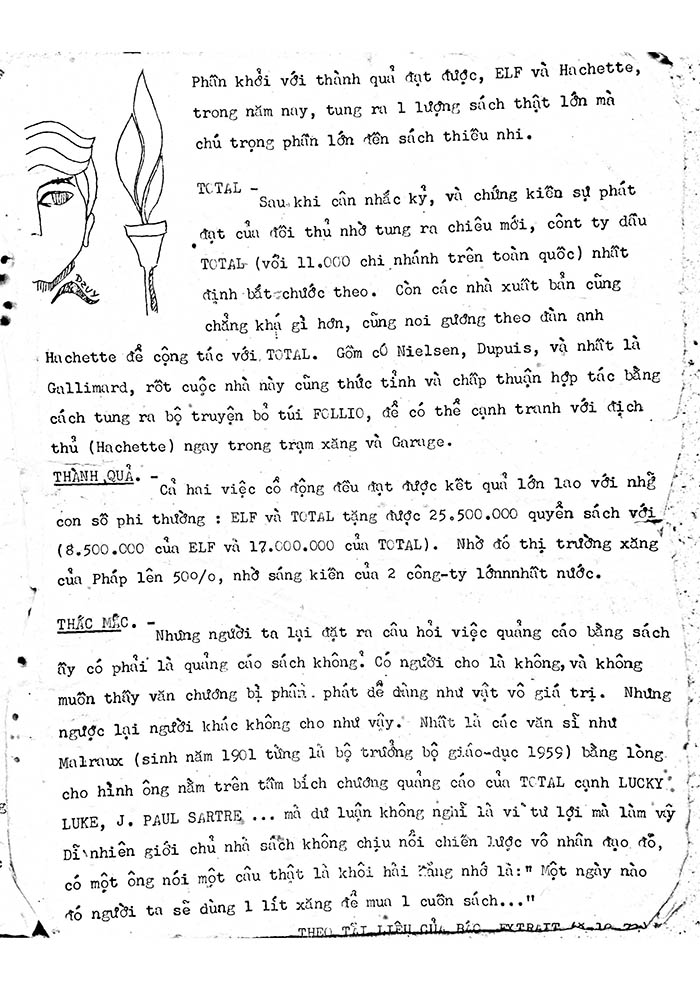 Phấn khởi với thành quả đạt được, ELF và Hachette,
trong năm nay, tung ra 1 lượng sách thật lớn mà
chú trọng phần lớn đến sách thiếu nhi.
TOTAL -
Sau khi cân nhắc kỷ, và chứng kiến sự phát
đạt của đối thủ nhờ tung ra chiêu mới, cônt ty dầu
TOTAL (vối 11.000 chi nhánh trên toàn quốc) nhất
định bắt chước theo. Còn các nhà xuất bản cũng
chẳng khá gì hơn, cũng noi gương theo đàn anh
Hachette để cộng tác với TOTAL. Gồm có Nielsen, Dupuis, và nhất là
Gallimard, rốt cuộc nhà này cũng thức tỉnh và chấp thuận hợp tác bằng
cách tung ra bộ truyện bỏ túi FOLLIO, để có thể cạnh tranh với địch
thủ (Hachette) ngay trong trạm xăng và Garage.
THÀNH QUẢ. -
Cả hai việc cổ động đều đạt được kết quả lớn lao với nhg
con số phi thường : ELF và TOTAL tặng được 25.500.000 quyển sách với
(8.500.000 của ELF và 17.000.000 của TOTAL). Nhờ đó thị trường xăng
của Pháp lên 50o/o, nhờ sáng kiến của 2 công-ty lớnnnhất nước.
THẮC MẮC. -
Nhưng người ta lại đặt ra câu hỏi việc quảng cáo bằng sách
ấy có phải là quảng cáo sách không? Có người cho là không, và không
muốn thấy văn chương bị phân phát dễ dàng như vật vô giá trị. Nhưng
ngược lại người khác không cho như vậy. Nhất là các văn sĩ như
Malraux (sinh năm 1901 từng là bộ trưởng bộ giáo-dục 1959) bằng lòng
cho hình ông nằm trên tấm bích chương quảng cáo của TOTAL cạnh LUCKY
LUKE, J. PAUL SARTRE ... mà dư luận không nghĩ là vì tư lợi mà làm vậy
Dĩ nhiên giới chủ nhà sách không chịu nổi chiến lược vô nhân đạo đó,
có một ông nói một câu thật là khôi hài đáng nhớ là:" Một ngày nào
đó người ta sẽ dùng 1 lít xăng để mua 1 cuốn sách..."
THEO TÀI LIỆU CỦA BÁO EXTRAIT
DZUY